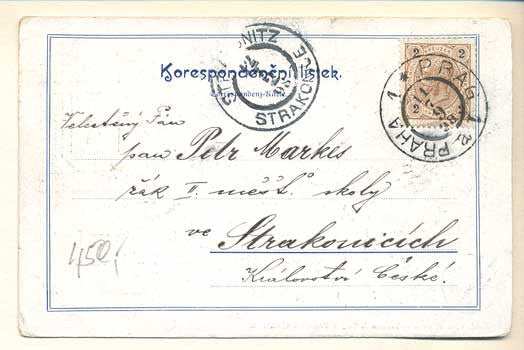 Korespondenční lístek.
Correspondenz-Karte.
STRAKONICE
PRAG 1
PRAHA 1
2
2
Veletěný Pán
pan Petr Markes
žák II. měšť. školy
ve Strakonicích
Království České.
450,